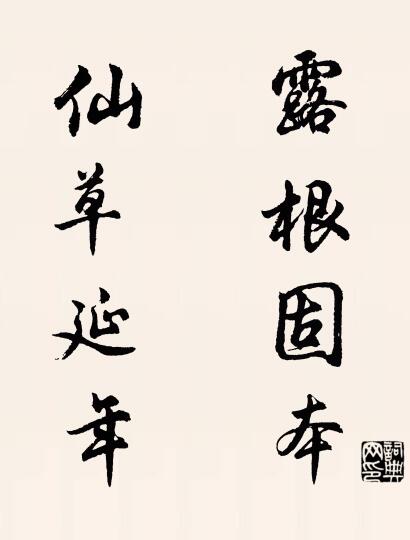 露根固本
仙草延年
詞典网印